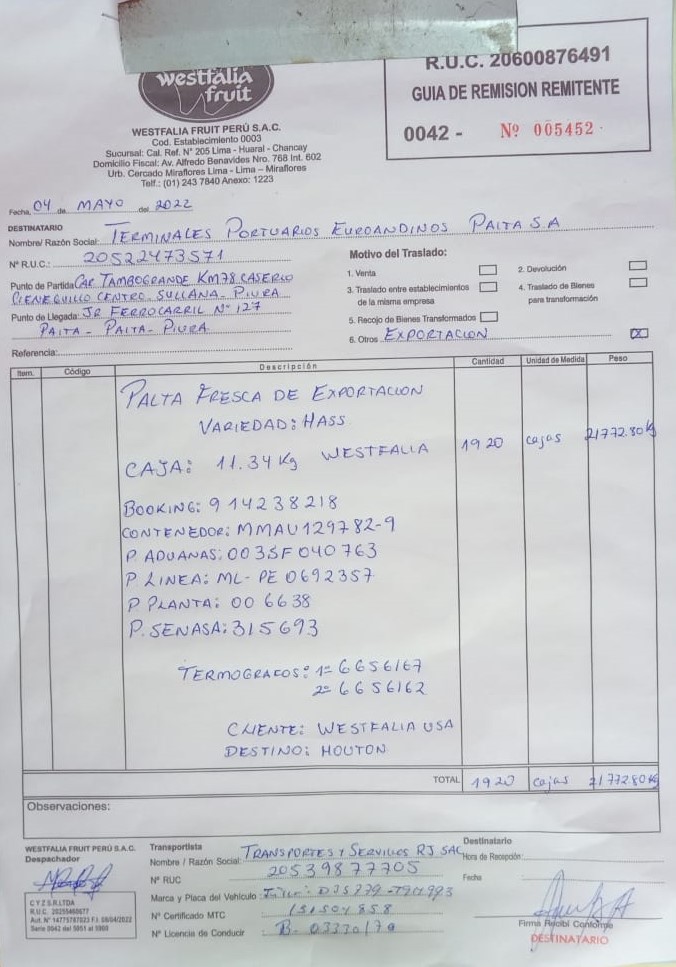 westfalia
fruit
WESTFALIA FRUIT PERÚ S.A.C.
Cod. Establecimiento 0003
Sucursal: Cal. Ref. N° 205 Lima - Huaral - Chancay
Domicilio Fiscal: Av. Alfredo Benavides Nro. 768 Int. 602
Urb. Cercado Miraflores Lima - Lima - Miraflores
Telf.: (01) 243 7840 Anexo: 1223
R.U.C. 20600876491
GUIA DE REMISION REMITENTE
0042 - Nº 005452
Fecha, 04 de MAYO del 2022
DESTINATARIO
Nombre/ Razón Social: TERMINALES PORTUARIOS EUROANDINOS PAITA S A
N° R.U.C.: 20522473571
Punto de Partida CAR TAMBOGRANDE KM78 CASERIO
CIENEGUILLO CENTRO - SULLANA - PIURA
Punto de Llegada: JR FERROCARRIL N° 127
PAITA - PAITA - PIURA
Referencia:
Motivo del Traslado:
1. Venta
2. Devolución
3. Traslado entre establecimientos
de la misma empresa
4. Traslado de Bienes
para transformación
5. Recojo de Bienes Transformados
6. Otros EXPORTACION X
Item. Código Descripción Cantidad Unidad de Medida Peso
PALTA FRESCA DE EXPORTACION
VARIEDAD: HASS
CAJA: 11.34 Kg WESTFALIA 1920 cajas 21772.80 Kg
BOOKING: 914238218
CONTENEDOR: MMAU129782-9
P. ADUANAS: 003SF040763
P LINEA: ML-PE 0692357
P PLANTA: 006638
P. SENASA: 315693
TERMOGRAFOS: 1= 6656167
2= 6656162
CLIENTE: WESTFALIA USA
DESTINO: HOUTON
TOTAL 1920 cajas 21772.80 Kg
Observaciones:
WESTFALIA FRUIT PERÚ S.A.C.
Despachador
C Y Z S.R.LTDA
Serie 0042 del 5051 al
Transportista
Nombre / Razón Social: TRANSPORTES Y SERVICIOS RJ SAC
N° RUC 20539877705
Marca y Placa del Vehículo:
N° Certificado MTC 151504858
N° Licencia de Conducir B-
Destinatario
Hora de Recepción:
Fecha
Firma Recibí Conforme
DESTINATARIO